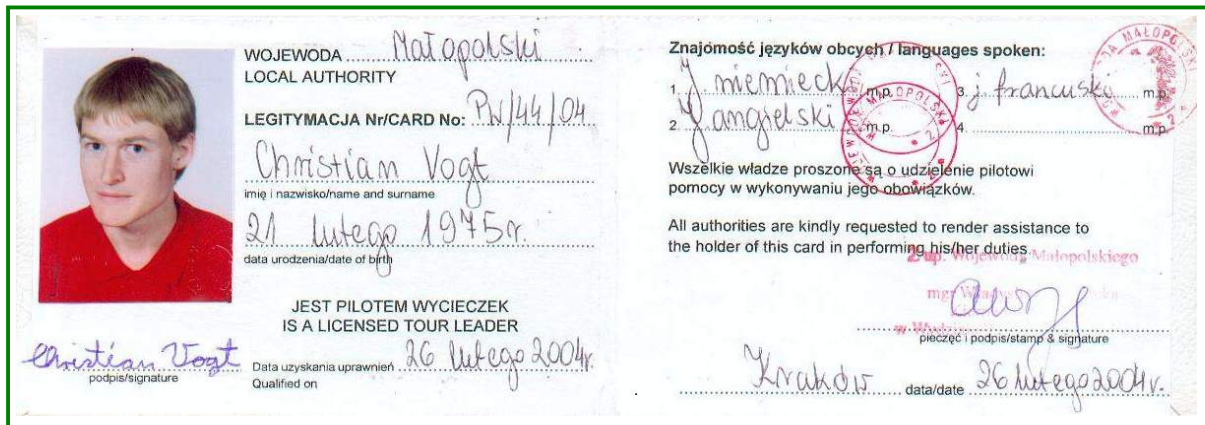 WOJEWODA Małopolski
LOCAL AUTHORITY
LEGITYMACJA Nr/CARD No: PN/44/04
Christian Vogt
imię i nazwisko/name and surname
21 lutego 1975r.
data urodzenia/date of birth
JEST PILOTEM WYCIECZEK
IS A LICENSED TOUR LEADER
Christian Vogt
podpis/signature
Data uzyskania uprawnień 26 lutego 2004r.
Qualified on
Znajomość języków obcych / languages spoken:
1. J niemiecki m.p. 3. j francuski m.p.
2. J angielski m.p. 4. m.p.
Wszelkie władze proszone są o udzielenie pilotowi
pomocy w wykonywaniu jego obowiązków.
All authorities are kindly requested to render assistance to
the holder of this card in performing his/her duties.
Z up. Wojewody Małopolskiego
mgr
pieczęć i podpis/stamp & signature
Kraków data/date 26 lutego 2004r.